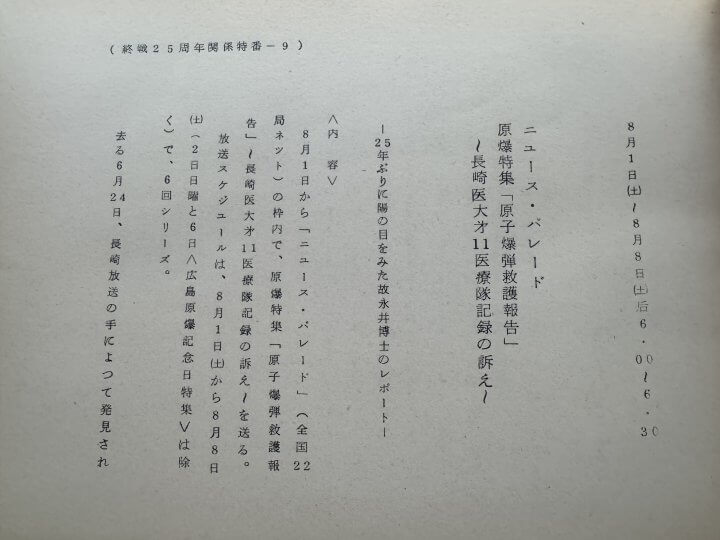 (終戦25周年関係特番-9)
8月1日(土)~8月8日(土)后6・00~6・30
ニュース・パレード
原爆特集「原子爆弾救護報告」
~長崎医大才11医療隊記録の訴え~
-25年ぶりに陽の目をみた故永井博士のレポート-
<内 容>
8月1日から「ニュース・パレード」(全国22
局ネット)の枠内で、原爆特集「原子爆弾救護報
告」~長崎医大才11医療隊記録の訴え~を送る。
放送スケジュールは、8月1日(土)から8月8日
(土)(2日日曜と6日<広島原爆記念日特集>は除
く)で、6回シリーズ。
去る6月24日、長崎放送の手によつて発見され